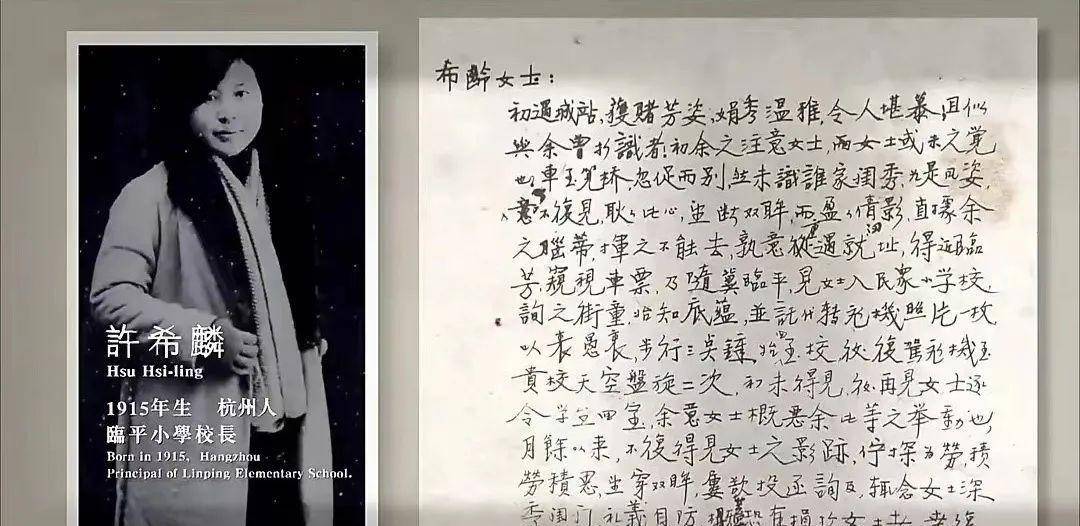 許希麟
Hsu Hsi-ling
1915年生 杭州人
臨平小學校長
Born in 1915, Hangzhou
Principal of Linping Elementary School.
布齡女士：
初遇城站，獲睹芳姿，娟秀温雅，令人堪慕，且似
與余曾於識者，初余之注意女士，而女士或未之覺
也，車至筧橋，忽促而別，然未識誰家閨秀，
不復見，耿耿此心，望断双眸，而盈盈倩影，直據余
之腦蒂，揮之不能去，孰意從遇就址，得近臨
芳，窺視車票，乃隨冀臨平，見女士入民家小学校，
詢之街童，始知底藴，並託代轉飛機照片一枚
以表愚衷，步行三吴鐘，始至校，後復駕飛機至
貴校天空盤旋二次，初未得見，後再見女士逐
令学並回室，余意女士概惡余此等之举動也，
月餘以来，不復得見女士之影跡，佇探為勞，積
勞積思，望穿双眸，屢欲投函詢及，輒念女士深
禮義自防